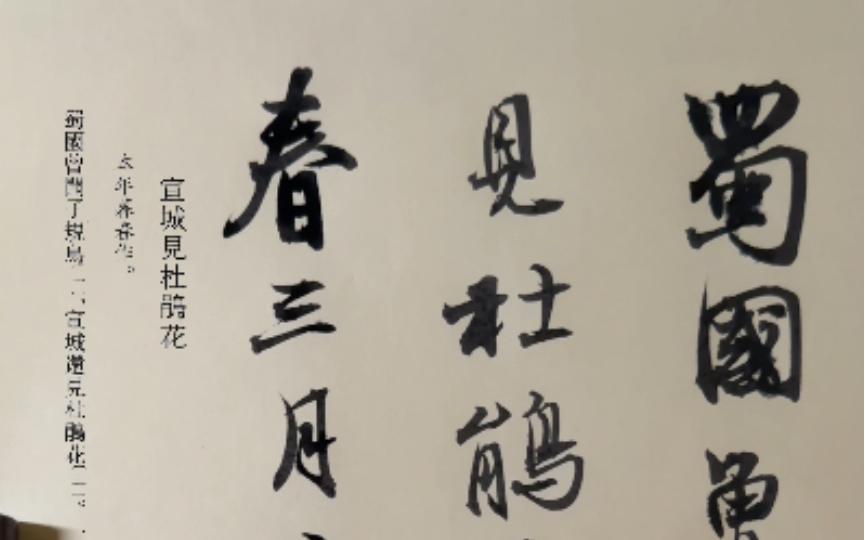 蜀國曾
見杜鵑
春三月
宣城見杜鵑花
年暮春作。
蜀國曾聞子規鳥「一」，宣城還見杜鵑花「二」。